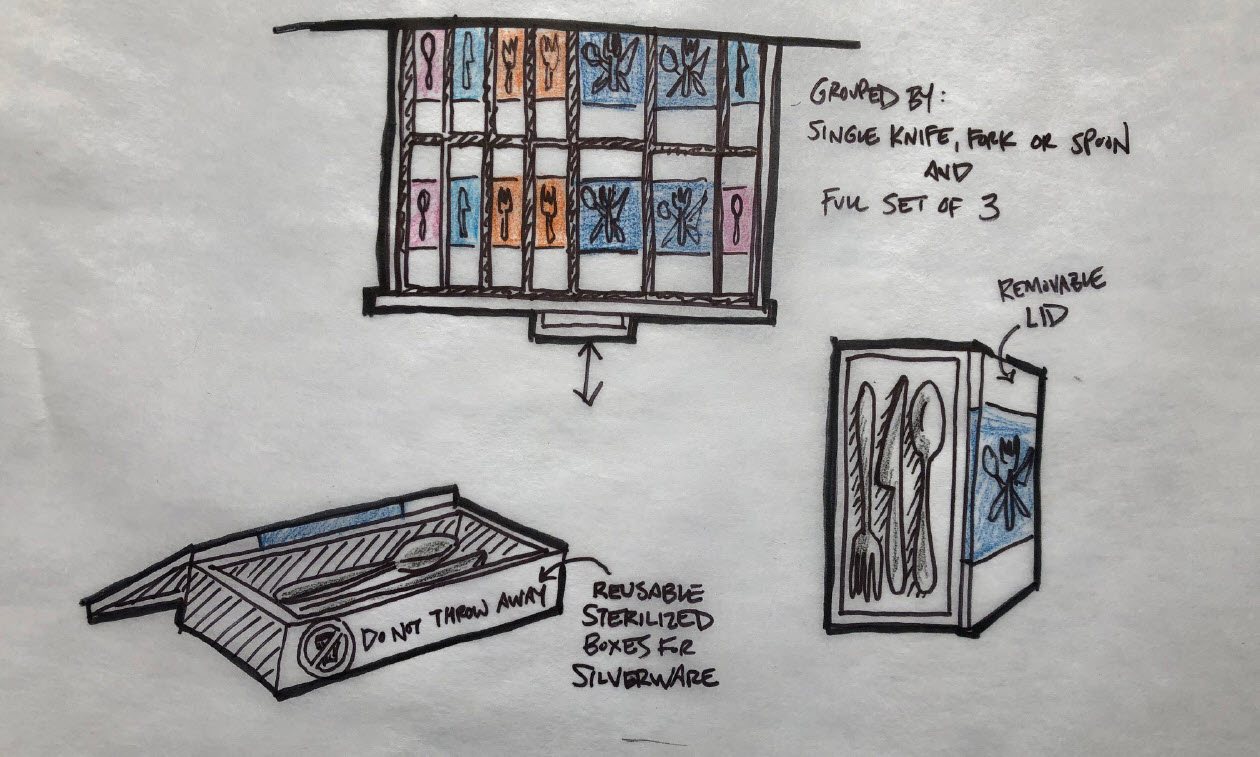 GROUPED BY:
SINGLE KNIFE, FORK OR SPOON
AND
FULL SET OF 3
REMOVABLE
LID
DO NOT THROW AWAY
REUSABLE
STERILIZED
BOXES FOR
SILVERWARE